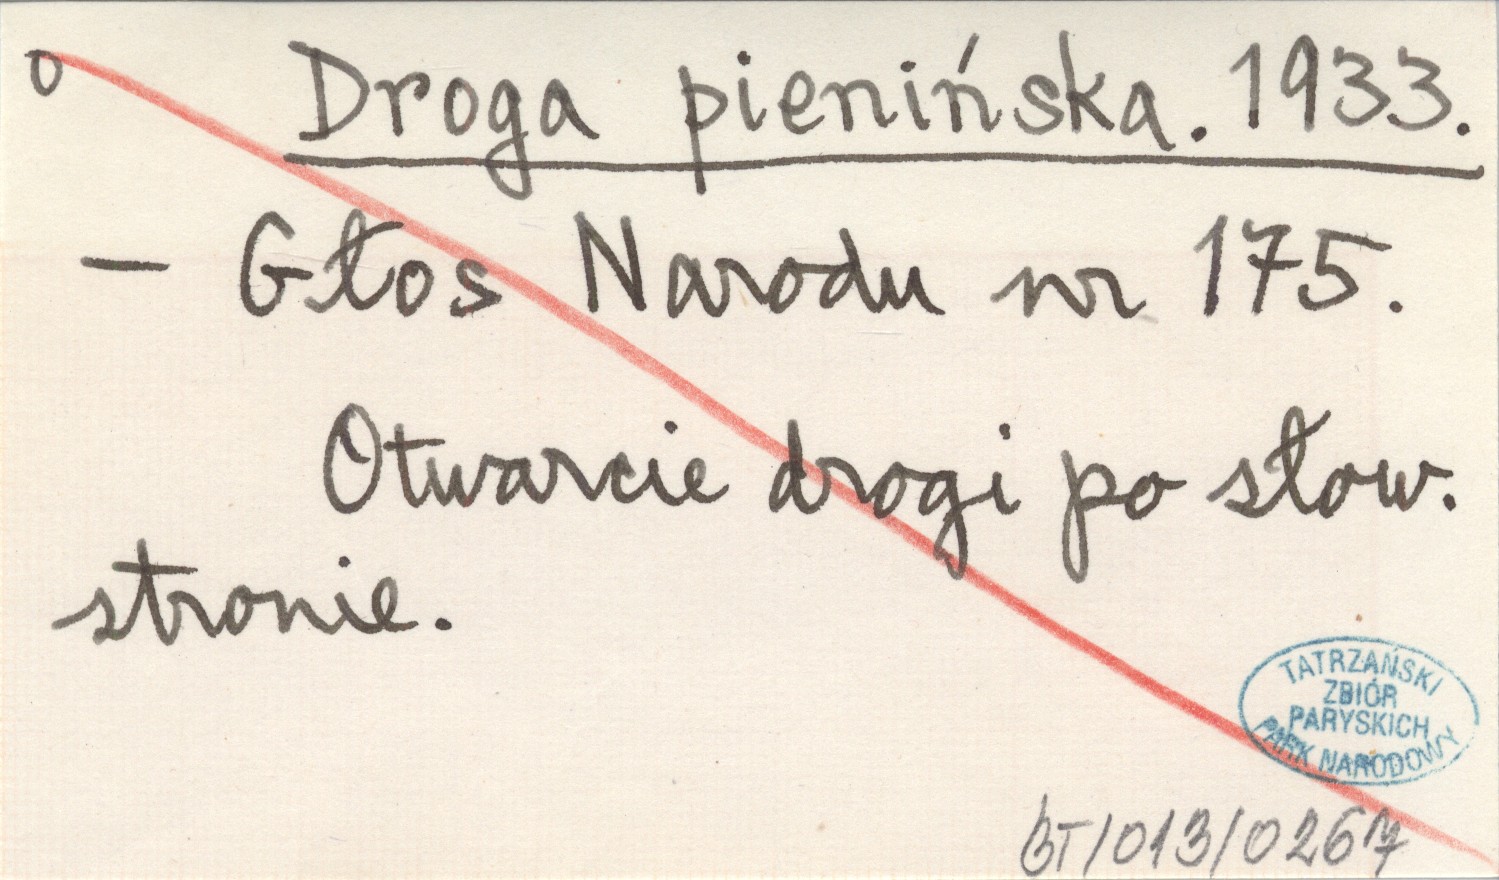 o Droga pienińska. 1933.
– Głos Narodu nr 175.
Otwarcie drogi po słow.
stronie.
TATRZAŃSKI
ZBIÓR
PARYSKICH
PARK NARODOWY
BT/013/0267